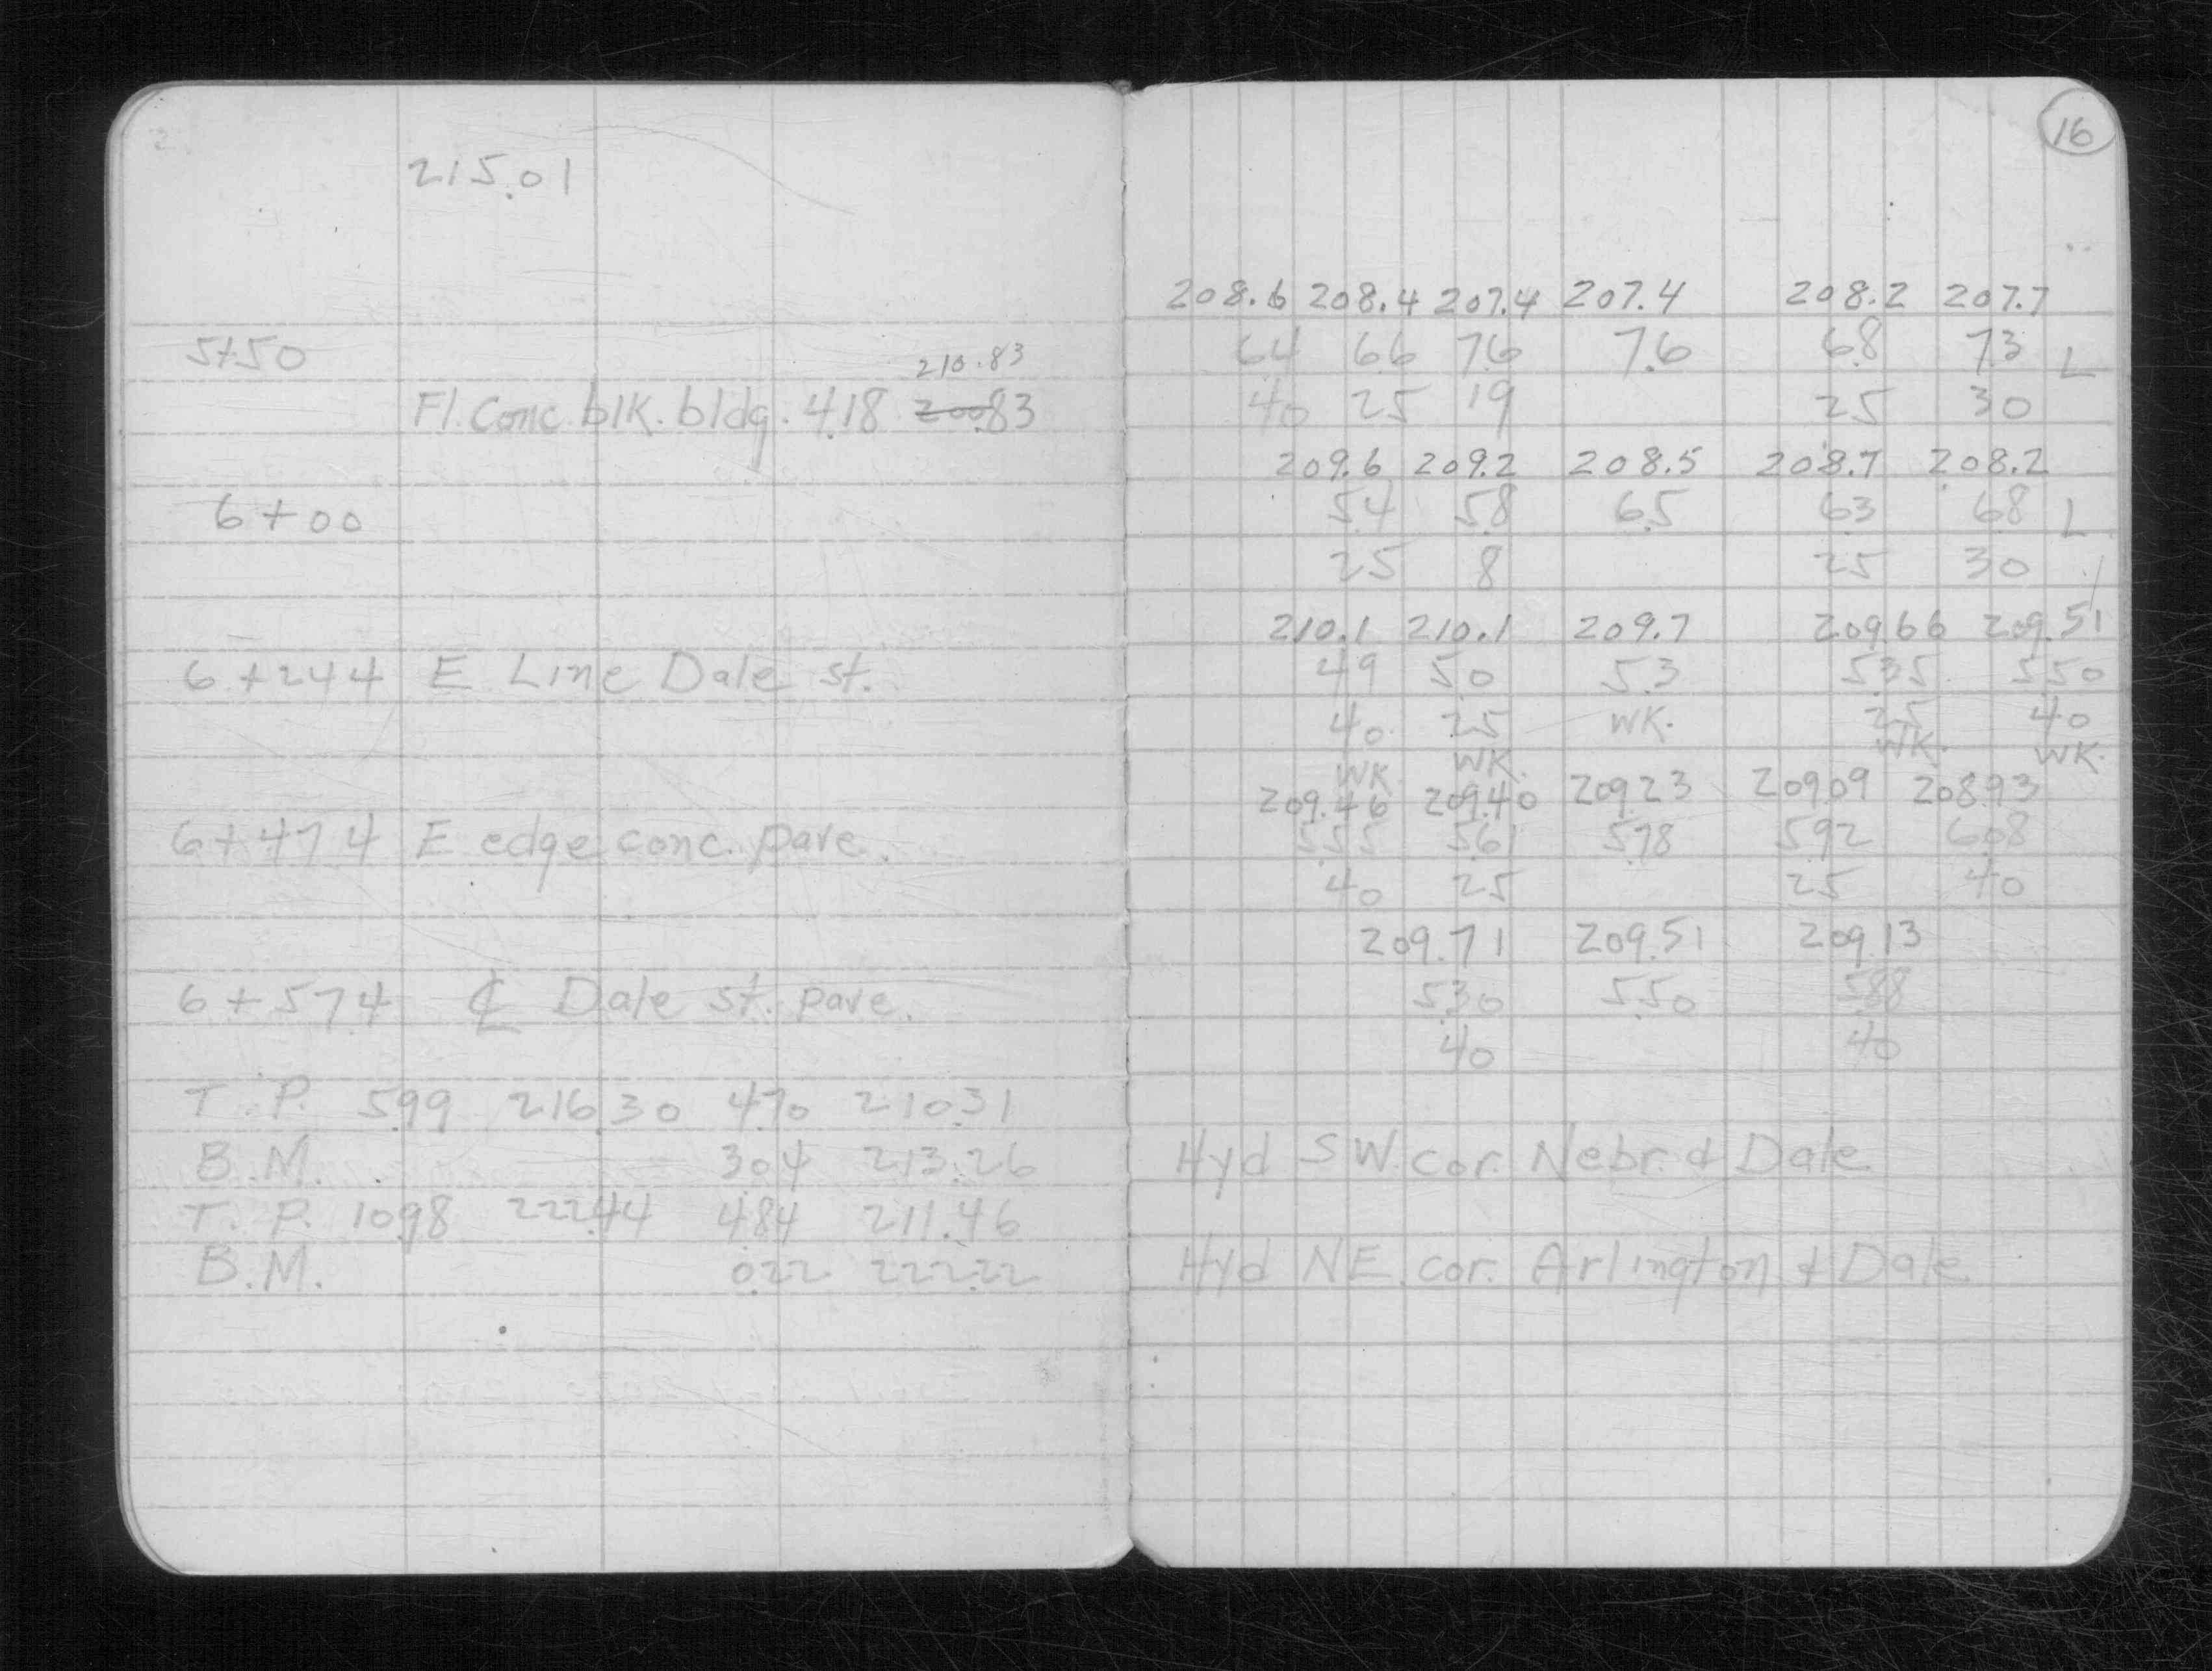 16
215.01
208.6 208.4 207.4 207.4 208.2 207.7
5+50 64 66 76 7.6 68 73 L
210.83
Fl. Conc. blk. bldg. 4.18 200.83 40 25 19 25 30
209.6 209.2 208.5 208.7 208.2
6+00 54 58 6.5 63 68 L
25 8 25 30
210.1 210.1 209.7 209.66 209.51
6+24.4 E Line Dale st. 49 50 5.3 5.35 5.50
40 25 WK. 25 40
WK. WK. WK. WK.
209.46 209.40 209.23 209.09 208.93
6+47.4 E edge conc. pave. 5.55 5.61 5.78 5.92 6.08
40 25 25 40
209.71 209.51 209.13
6+57.4 ℄ Dale st. pave. 5.30 5.50 5.88
40 40
T.P. 5.99 216.30 4.70 210.31
B.M. 3.04 213.26 Hyd SW. cor. Nebr. & Dale
T.P. 10.98 222.44 4.84 211.46
B.M. 0.22 222.22 Hyd NE. cor. Arlington & Dale